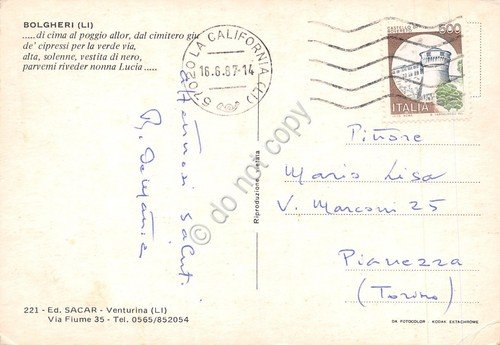 BOLGHERI (LI)
.....di cima al poggio allor, dal cimitero giù
de' cipressi per la verde via,
alta, solenne, vestita di nero,
parvemi riveder nonna Lucia .....
57020 LA CALIFORNIA (LI)
16.6.87-14
500
ITALIA
affettuosi saluti
Riproduzione vietata
do not copy
Pittore
Mario Lisa
V. Marconi 25
Pianezza
(Torino)
221 - Ed. SACAR - Venturina (LI)
Via Fiume 35 - Tel. 0565/852054
DA FOTOCOLOR - KODAK EKTACHROME